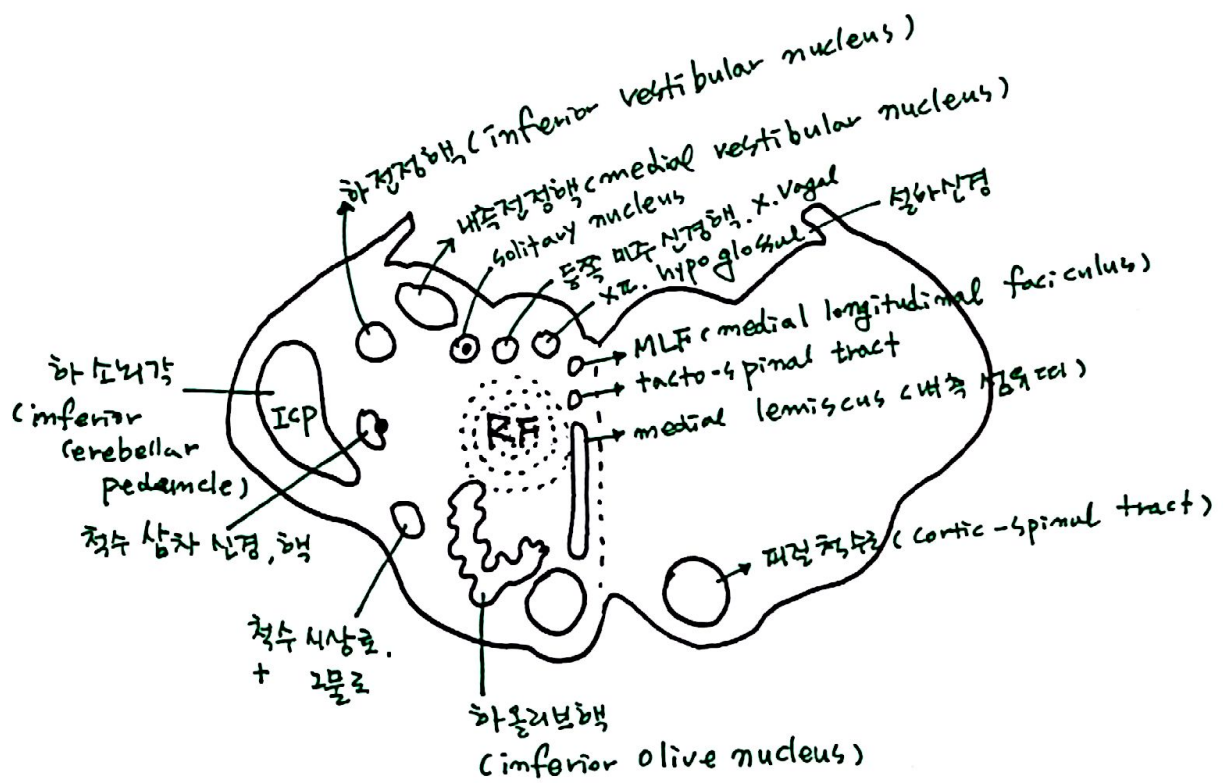 하전정핵 (inferior vestibular nucleus)
내측전정핵 (medial vestibular nucleus)
solitary nucleus
등쪽 미주 신경핵. X. Vagal
XII. hypoglossal
설하신경
MLF (medial longitudinal faciculus)
tacto-spinal tract
medial lemiscus (내측 섬유띠)
하 소뇌각
(inferior
cerebellar
peduncle)
ICP
RF
척수 삼차 신경, 핵
척수 시상로.
+ 그물로
하올리브핵
(inferior olive nucleus)
피질척수로 (cortic-spinal tract)